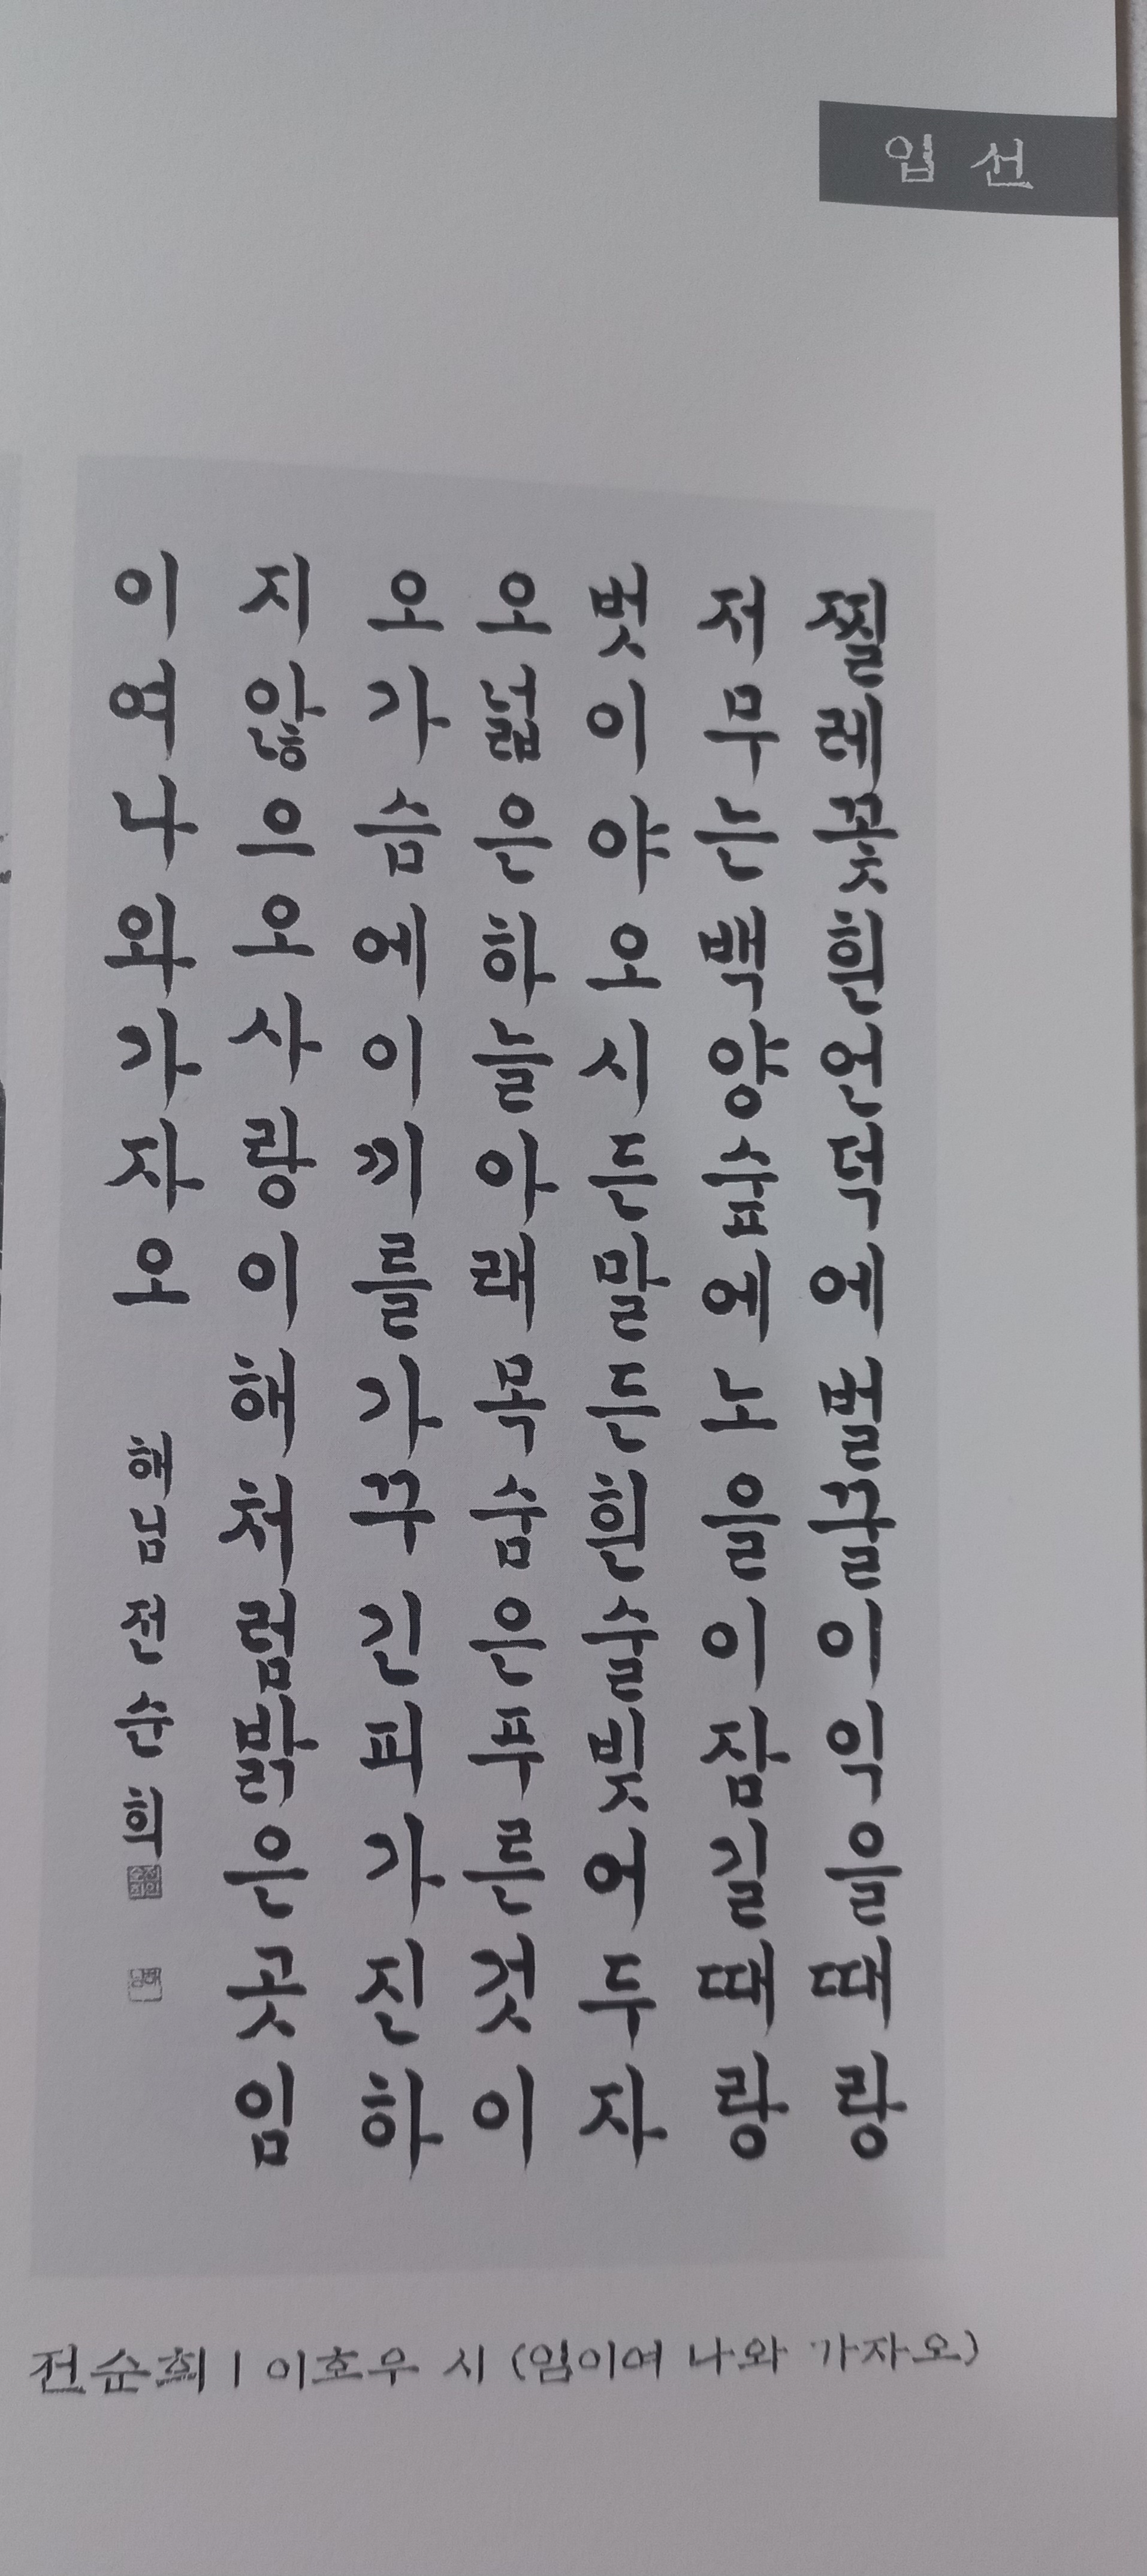 입선
찔레꽃흰언덕에벌꿀이익을때랑
저무는백양숲에노을이잠길때랑
벗이야오시든말든흰술빚어두자
오넓은하늘아래목숨은푸른것이
오가슴에이끼를가꾸긴피가진하
지않으오사랑이해처럼밝은곳임
이여나와가자오 해님전순희
전순희 | 이호우 시 (임이여 나와 가자오)